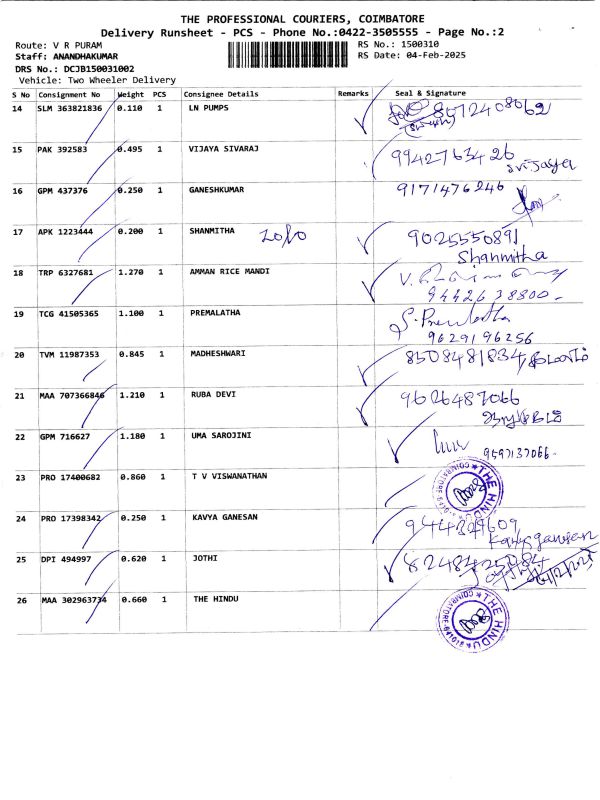 THE PROFESSIONAL COURIERS, COIMBATORE
Delivery Runsheet - PCS - Phone No.:0422-3505555 - Page No.:2
Route: V R PURAM RS No.: 1500310
Staff: ANANDHAKUMAR RS Date: 04-Feb-2025
DRS No.: DCJB150031002
Vehicle: Two Wheeler Delivery
S No Consignment No Weight PCS Consignee Details Remarks Seal & Signature
14 SLM 363821836 0.110 1 LN PUMPS 8012408062
15 PAK 392583 0.495 1 VIJAYA SIVARAJ 9942763426
16 GPM 437376 0.250 1 GANESHKUMAR 9171476246
17 APK 1223444 0.200 1 SHANMITHA 9025550891
Shanmitha
18 TRP 6327681 1.270 1 AMMAN RICE MANDI
9442638800
19 TCG 41505365 1.100 1 PREMALATHA S. Premlatha
9629196256
20 TVM 11987353 0.845 1 MADHESHWARI 8508481834
21 MAA 707366846 1.210 1 RUBA DEVI 9626487066
22 GPM 716627 1.180 1 UMA SAROJINI 9597137066
23 PRO 17400682 0.860 1 T V VISWANATHAN THE HINDU COIMBATORE
24 PRO 17398342 0.250 1 KAVYA GANESAN
Kavya ganesan
25 DPI 494997 0.620 1 JOTHI
26 MAA 302963734 0.660 1 THE HINDU THE HINDU COIMBATORE-641018